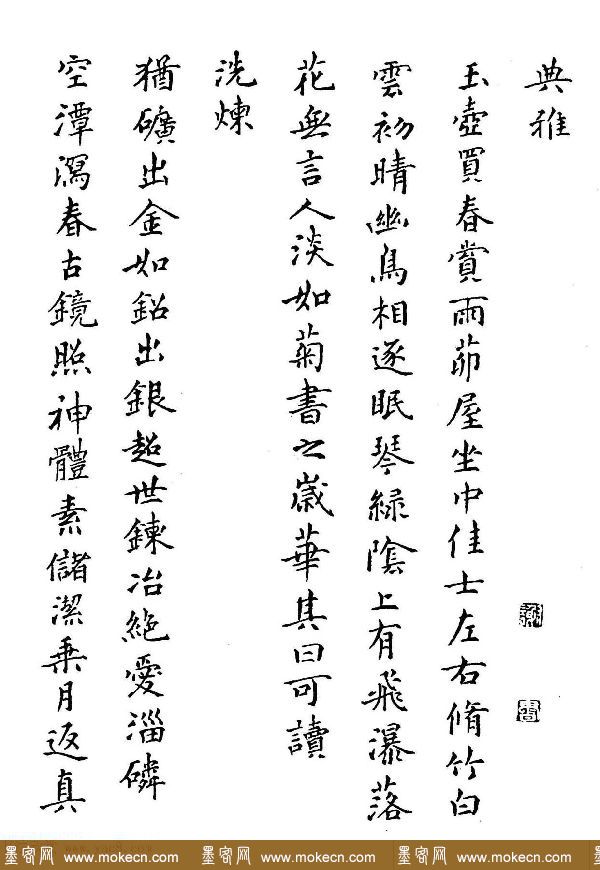 典雅
玉壺買春賞雨茆屋坐中佳士左右脩竹白
雲初晴幽鳥相逐眠琴綠陰上有飛瀑落
花無言人淡如菊書之歲華其曰可讀
洗煉
猶礦出金如鉛出銀超世鍊冶絕愛淄磷
空潭瀉春古鏡照神體素儲潔乗月返真
墨客网 www.mokecn.com 墨客网 www.mokecn.com 墨客网 www.mokecn.com